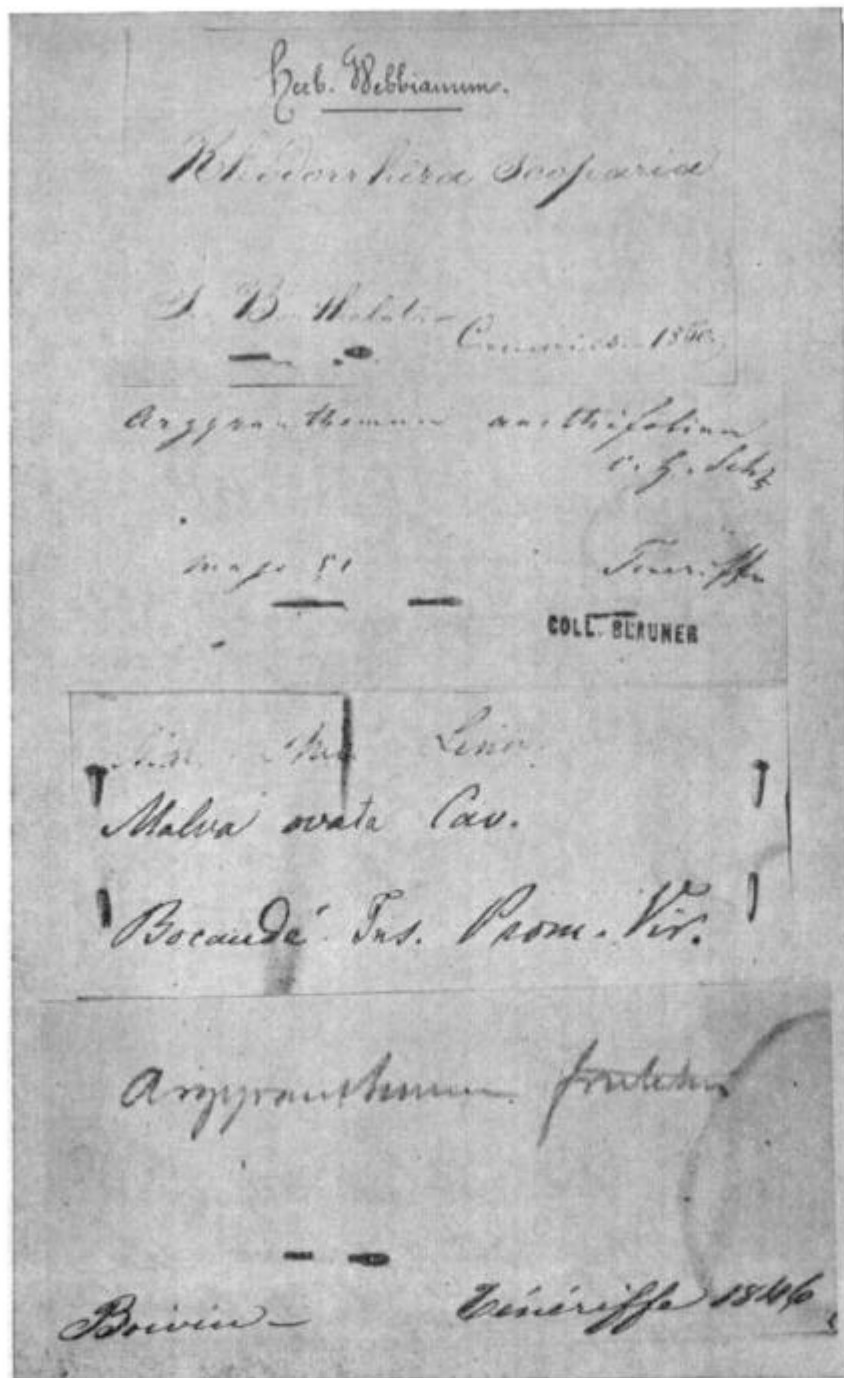 Herb. Webbianum.
Rhodorrhiza Scoparia
Canaries 1846
Argyranthemum anethifolium
C. H. Schz
majo 51 Teneriffa
COLL. BLAUNER
Linn.
Malva ovata Cav.
Bocandé Ins. Prom. Vir.
Argyranthemum frutescens
Boivin Ténériffe 1846